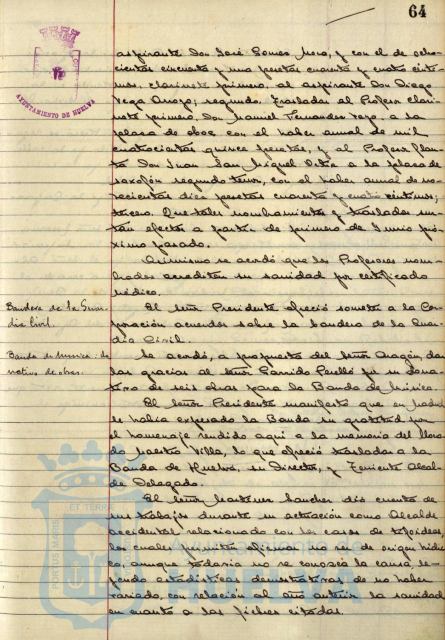 64
AYUNTAMIENTO DE HUELVA
aspirante Don José Gomez Mora, y con el de ocho-
cientas cincuenta y una pesetas cuarenta y cuatro cénti-
mos, clarinete primero, al aspirante Don Diego
Vega segundo. Trasladar al Profesor clari-
nete primero, Don Manuel Fernandez a la
plaza de oboe, con el haber anual de mil
cuatrocientas quince pesetas, y al Profesor
Don Juan San Miguel a la plaza de
saxofón segundo tenor, con el haber anual de no-
vecientas diez pesetas cuarenta y cuatro céntimos;
tercero. Que tales nombramientos y traslados sur-
tan efectos a partir de primero de Junio pró-
ximo pasado.
Asimismo se acordó que los Profesores nom-
brados acrediten su sanidad por certificado
médico.
Bandera de la Guar-
dia Civil.
El señor Presidente ofreció someter a la Cor-
poración acuerdo sobre la bandera de la Guar-
dia Civil.
Banda de música: do-
nativo de obras.
Se acordó, a propuesta del señor Aragón, dar
las gracias al señor Garrido Perelló por su dona-
tivo de seis obras para la Banda de Música.
El señor Presidente manifestó que en Madrid
se había expresado la Banda su gratitud por
el homenaje rendido aquí a la memoria del llora-
do Maestro Villa, lo que ofreció trasladar a la
Banda de Huelva, su Director, y Teniente Alcal-
de Delegado.
El señor Martinez Sanchez dió cuenta de
sus trabajos durante su actuación como Alcalde
accidental relacionado con los casos de tifoideas,
los cuales permiten afirmar no ser de origen hídri-
co, aunque todavía no se conozca la causa, le-
yendo estadísticas demostrativas de no haber
variado, con relación al año anterior la sanidad
en cuanto a las fiebres citadas.
PORTUS MARIS ET TERRAE
Ayuntamiento de
HUELVA